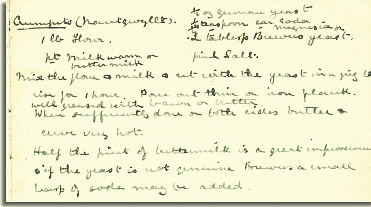 Crumpets (Nantgwyllt). ½ oz german yeast
½ teaspoon car soda
or magnesia or
1 lb flour, 2 tablesp Brewers yeast,
pt Milk warm or pinch Salt.
buttermilk
Mix the flour & milk & set with the yeast in a jug to
rise for 1 hour. Pour out thin on iron plank
well greased with bacon or butter
When sufficiently done on both sides butter &
serve very hot.
Half the pint of buttermilk is a great improvement
& if the yeast is not genuine Brewers a small
teasp of soda may be added.